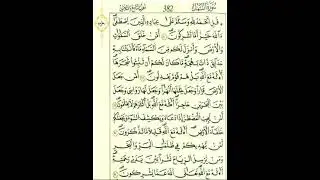 سُورَةُ النَّمْلِ 382
قُلِ الْحَمْدُ لِلَّهِ وَسَلَٰمٌ عَلَىٰ عِبَادِهِ الَّذِينَ اصْطَفَىٰ
ءَاللَّهُ خَيْرٌ أَمَّا يُشْرِكُونَ أَمَّنْ خَلَقَ السَّمَٰوَٰتِ
وَالْأَرْضَ وَأَنزَلَ لَكُم مِّنَ السَّمَاءِ مَاءً فَأَنبَتْنَا بِهِ
حَدَائِقَ ذَاتَ بَهْجَةٍ مَّا كَانَ لَكُمْ أَن تُنبِتُوا شَجَرَهَا
أَءِلَٰهٌ مَّعَ اللَّهِ بَلْ هُمْ قَوْمٌ يَعْدِلُونَ أَمَّن جَعَلَ
الْأَرْضَ قَرَارًا وَجَعَلَ خِلَٰلَهَا أَنْهَٰرًا وَجَعَلَ لَهَا رَوَٰسِيَ وَجَعَلَ
بَيْنَ الْبَحْرَيْنِ حَاجِزًا أَءِلَٰهٌ مَّعَ اللَّهِ بَلْ أَكْثَرُهُمْ لَا يَعْلَمُونَ
أَمَّن يُجِيبُ الْمُضْطَرَّ إِذَا دَعَاهُ وَيَكْشِفُ السُّوءَ وَيَجْعَلُكُمْ
خُلَفَاءَ الْأَرْضِ أَءِلَٰهٌ مَّعَ اللَّهِ قَلِيلًا مَّا تَذَكَّرُونَ
أَمَّن يَهْدِيكُمْ فِي ظُلُمَٰتِ الْبَرِّ وَالْبَحْرِ
وَمَن يُرْسِلُ الرِّيَٰحَ بُشْرًا بَيْنَ يَدَيْ رَحْمَتِهِ
أَءِلَٰهٌ مَّعَ اللَّهِ تَعَٰلَى اللَّهُ عَمَّا يُشْرِكُونَ